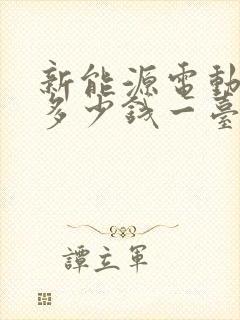 新能源電動
多少錢一臺
譚立軍